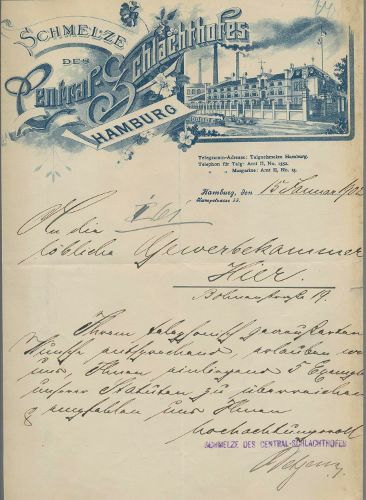 SCHMELZE
DES
Central-Schlachthofes
HAMBURG
Telegramm-Adresse: Talgschmelze Hamburg.
Telephon für Talg: Amt II, No. 1352.
" " Margarine: Amt II, No. 15.
Hamburg, den 15 Januar 1902
Kampstrasse 55.
An die
löbliche Gewerbekammer
Hier.
Ihrem telephonisch geäusserten
Wunsche entsprechend, erlauben wir
uns, Ihnen einliegend 5 Exempl.
unserer Statuten zu überreichen
& empfehlen uns Ihnen
hochachtungsvoll
SCHMELZE DES CENTRAL-SCHLACHTHOFES